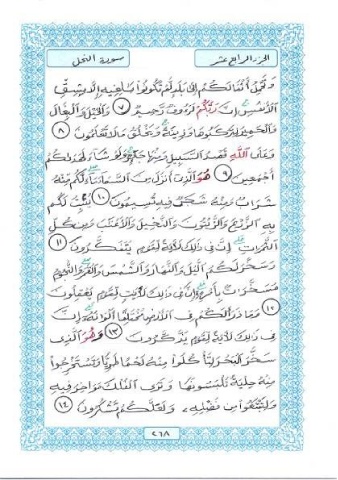 الجزء الرابع عشر
سورة النحل
وتحمل أثقالكم إلى بلد لم تكونوا بالغيه إلا بشق
الأنفس إن ربكم لرءوف رحيم ٧ والخيل والبغال
والحمير لتركبوها وزينة ويخلق ما لا تعلمون ٨
وعلى الله قصد السبيل ومنها جائر ولو شاء لهداكم
أجمعين ٩ هو الذي أنزل من السماء ماء لكم منه
شراب ومنه شجر فيه تسيمون ١٠ ينبت لكم
به الزرع والزيتون والنخيل والأعناب ومن كل
الثمرات إن في ذلك لآية لقوم يتفكرون ١١
وسخر لكم الليل والنهار والشمس والقمر والنجوم
مسخرات بأمره إن في ذلك لآيات لقوم يعقلون
١٢ وما ذرأ لكم في الأرض مختلفا ألوانه إن
في ذلك لآية لقوم يذكرون ١٣ وهو الذي
سخر البحر لتأكلوا منه لحما طريا وتستخرجوا
منه حلية تلبسونها وترى الفلك مواخر فيه
ولتبتغوا من فضله ولعلكم تشكرون ١٤
٢٦٨